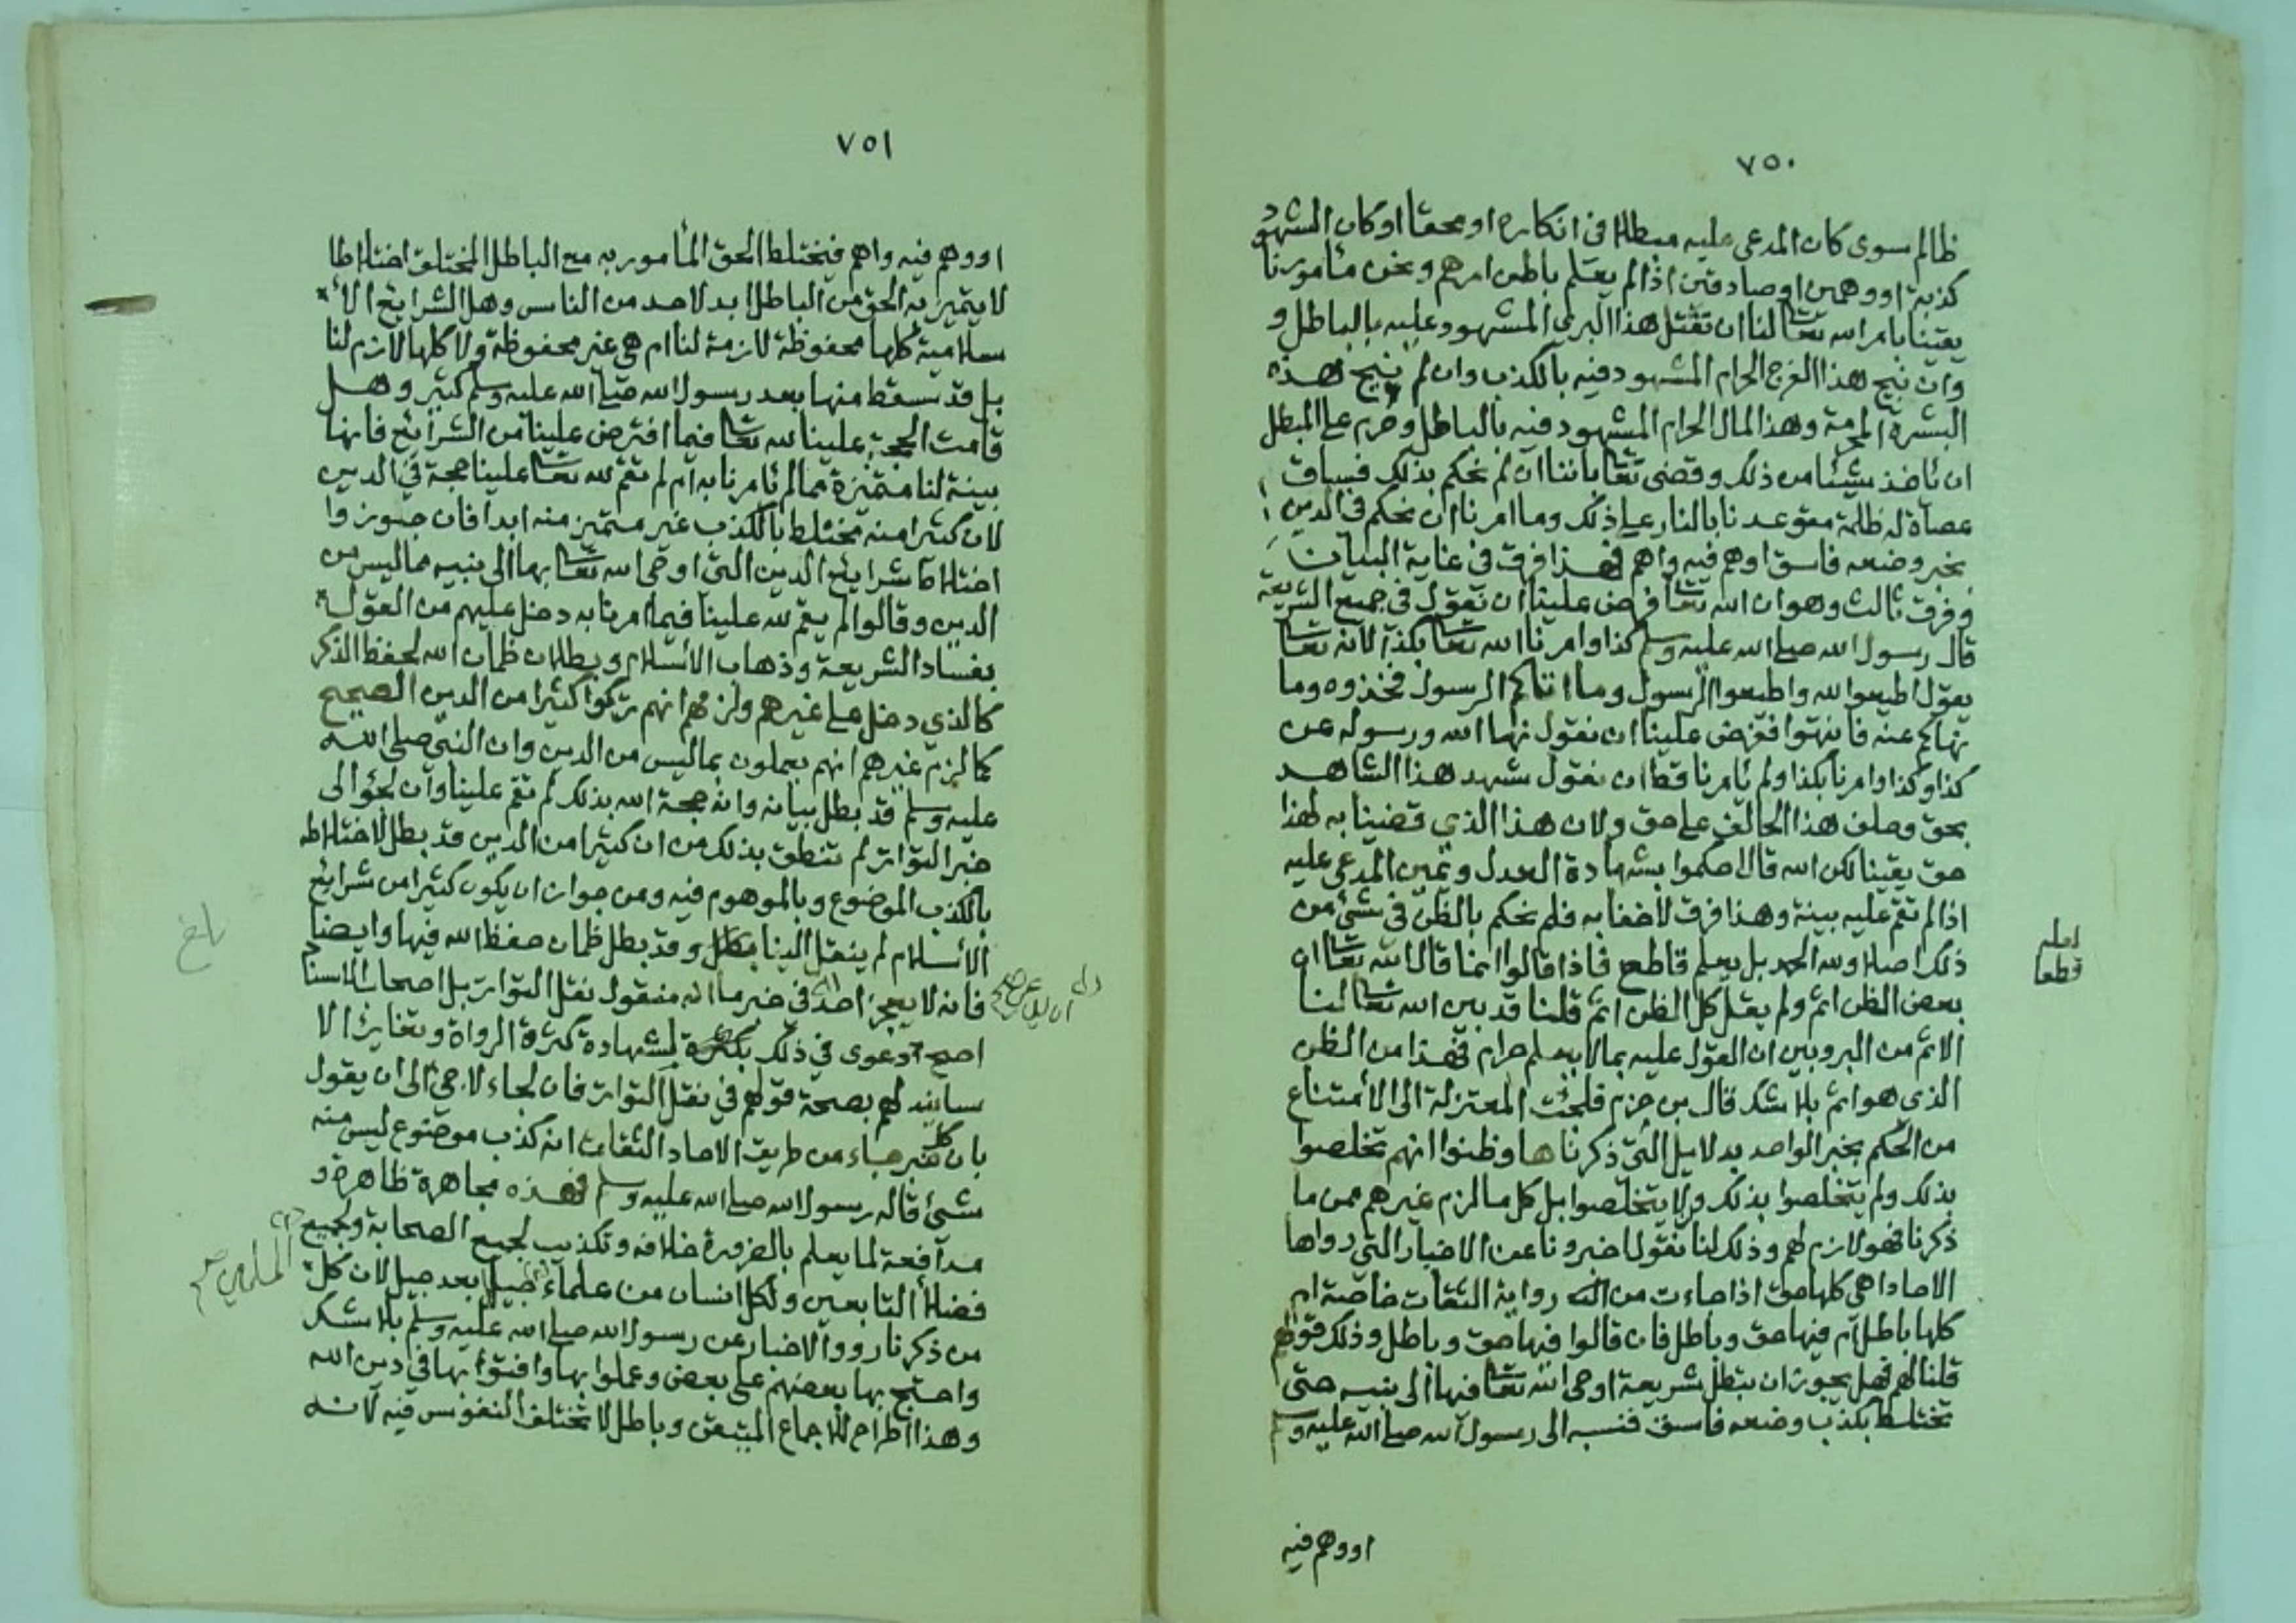 ٧٥٠
ظالم سوى كان المدعى عليه مبطلا فى انكاره او محقا او كان الشهود
كذبة او وهمين او صادقين اذا لم يعلم باطن امرهم ونحن مأمورنا
يقينا بامر الله تعا لنا ان نقتل هذا البرئ المشهود عليه بالباطل و
وان نبيح هذا الفرج الحرام المشهود فيه بالكذب وان لم نبيح هذه
البشرة المحرمة وهذا المال الحرام المشهود فيه بالباطل وحرم على المبطل
ان ياخذ شيئا من ذلك وقضى تعا باننا ان لم نحكم بذلك فساق
عصاة له ظلمة متوعدنا بالنار على ذلك وما امرنا ان نحكم فى الدين
بخبر وضعه فاسق او هم فيه واهم فهذا فرق فى غاية البيان
وفرق ثالث وهو ان الله تعا فرض علينا ان نقول فى جميع الشريعة
قال رسول الله صلى الله عليه وسلم كذا وامرنا الله تعا بكذا لانه تعا
يقول اطيعوا الله واطيعوا الرسول وما اتاكم الرسول فخذوه وما
نهاكم عنه فانتهوا ففرض علينا ان نقول نهانا الله ورسوله عن
كذا وكذا وامرنا بكذا ولم يأمرنا قط ان نقول شهد هذا الشاهد
بحق وحلف هذا الحالف على حق ولان هذا الذي قضينا به لهذا
حق يقينا لكن الله قال احكموا بشهادة العدل ويمين المدعى عليه
اذا لم تقم عليه بينة وهذا فرق لاخفا به فلم نحكم بالظن فى شئ من
ذلك اصلا ولله الحمد بل بعلم قاطع فاذا قالوا انما قال الله تعا ان
بعض الظن اثم ولم يقل كل الظن اثم قلنا قد بين الله تعا لنا
الاثم من البر وبين ان القول عليه بمالا يعلم حرام فهذا من الظن
الذى هو اثم بلا شك قال بن حزم فلجئت المعتزلة الى الأمتناع
من الحكم بخبر الواحد بدلايل التي ذكرناها وظنوا انهم تخلصوا
بذلك ولم يتخلصوا بذلك ولا يتخلصوا بل كل ما لزم غيرهم من ما
ذكرنا فهو لازم لهم وذلك لنا نقول اخبرونا عن الاخبار التي رواها
الاحاد اهى كلها حق اذا جاءت من رواية الثقات خاصة ام
كلها باطل ام فيها حق وباطل فان قالوا فيها حق وباطل وذلك قولهم
قلنا لهم فهل يجوز ان تبطل شريعة اوحى الله تعا فيها الى نبيه حتى
تختلط بكذب وضعه فاسق فنسبه الى رسول الله صلى الله عليه وسلم
او وهم فيه
قطعا
٧٥١
او وهم فيه واهم فيختلط الحق المأمور به مع الباطل المختلق اختلاطا
لا يتميز به الحق من الباطل ابد لاحد من الناس وهل الشرايع الأ
سلامية كلها محفوظة لازمة لنا ام هى غير محفوظة ولا كلها لازم لنا
بل قد سقط منها بعد رسول الله صلى الله عليه وسلم كثير وهل
قامت الحجة علينا لله تعا فيما افترض علينا من الشرائع فانها
بينة لنا متميزة مما لم يأمرنا به ام لم تقم لله تعا علينا حجة في الدين
لان كثيرا منه مختلط بالكذب غير متميز منه ابدا فان جوزوا
اختلاط شرايع الدين التي اوحى الله تعا بها الى نبيه مما ليس من
الدين وقالوا لم يقم لله علينا فيما امرنا به دخل عليهم من القول
بفساد الشريعة وذهاب الأسلام وبطلان ضمان الله لحفظ الذكر
كالذي دخل على غيرهم ولزمهم انهم تركوا كثيرا من الدين الصحيح
كما لزم غيرهم انهم يعملون بما ليس من الدين وان النبي صلى الله
عليه وسلم قد بطل بيانه وانه حجة الله بذلك لم تقم علينا وان لجؤ الى
خبر التواتر لم تنطق بذلك من ان كثيرا من الدين قد بطل لاختلاطه
بالكذب الموضوع وبالموهوم فيه ومن جوان ان يكون كثيرا من شرايع
الأسلام لم ينقل الينا وقد بطل ضمان حفظ الله فيها وايضا
فانه لا يعجز احد في خبر ما انه منقول نقل التواتر بل اصحاب الاسناد
اصح دعوى في ذلك لشهادة كثرة الرواة وتغاير الا
سانيد لهم بصحة قولهم في نقل التواتر فان لجاء لاجئ الى ان يقول
بان كل خبر جاء من طريق الاحاد الثقات انه كذب موضوع ليس منه
شئ قاله رسول الله صلى الله عليه وسلم فهذه مجاهرة ظاهرة و
مدافعة لما يعلم بالضرورة خلافه وتكذيب لجميع الصحابة ولجميع
فضلاء التابعين ولكل انسان من علماء جيل بعد جيل لان كل
من ذكرنا رووا الاخبار عن رسول الله صلى الله عليه وسلم بلا شك
واحتج بها بعضهم على بعض وعملوا بها وافتوا بها في دين الله
وهذا اطراح للاجماع المتيقن وباطل لا تختلف النفوس فيه لانه